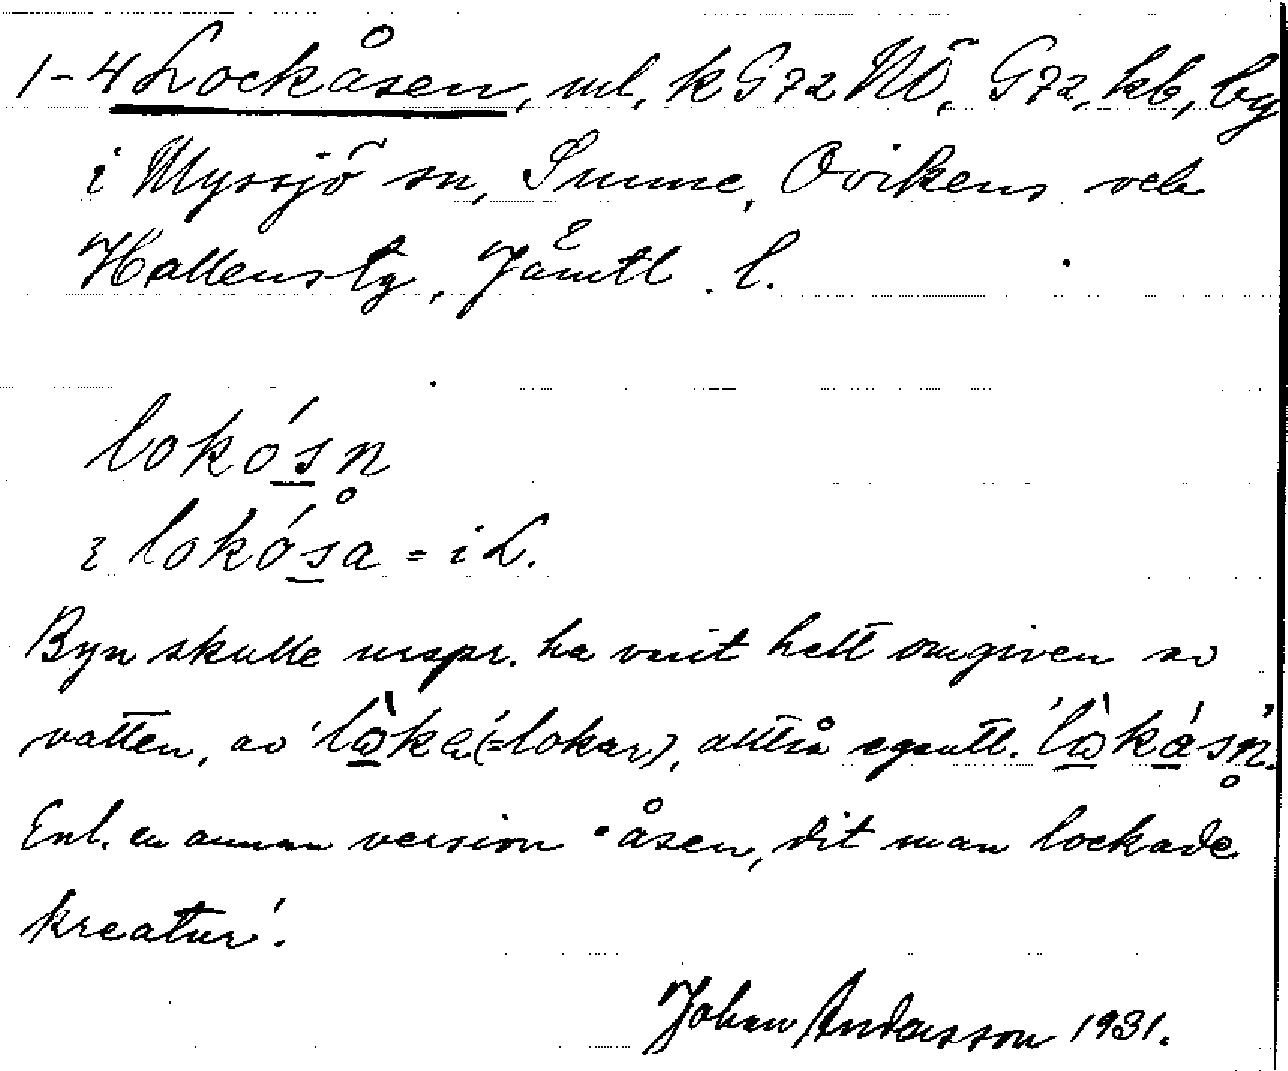 1-4 Lockåsen, ml, k G 72 NÖ, G 72, kb, by
i Myssjö sn, Sunne, Ovikens och
Hallens tg, Jämtl. l.
lokósn
lokóså = i L.
Byn skulle urspr. ha varit helt omgiven av
vatten, av 'lòka (= lokar), alltså egentl. 'lòkásn'.
Enl. en annan version "åsen, dit man lockade
kreatur".
Johan Andersson 1931.